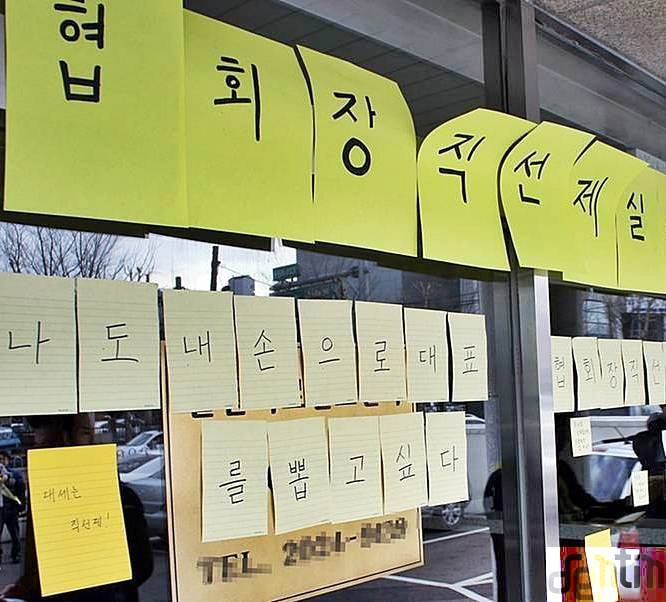 협회장직선제실
나도내손으로대표
를뽑고싶다
협회장직선
대세는
직선제!
TEL.
dentin